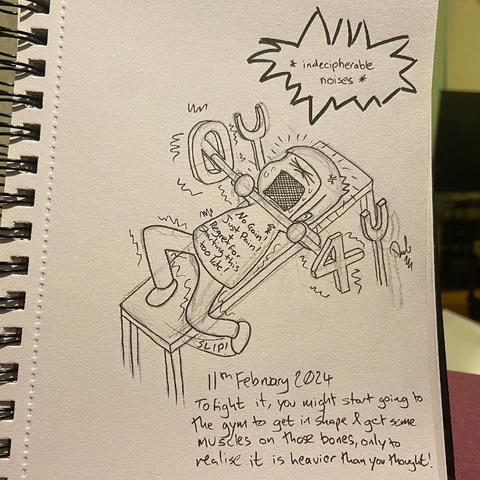 * indecipherable
noises *
No Gain!
Just Pain!
+
Regret for
starting this
too late!
SLIP!
11th February 2024
To fight it, you might start going to
the gym to get in shape & get some
muscles on those bones, only to
realise it is heavier than you thought!